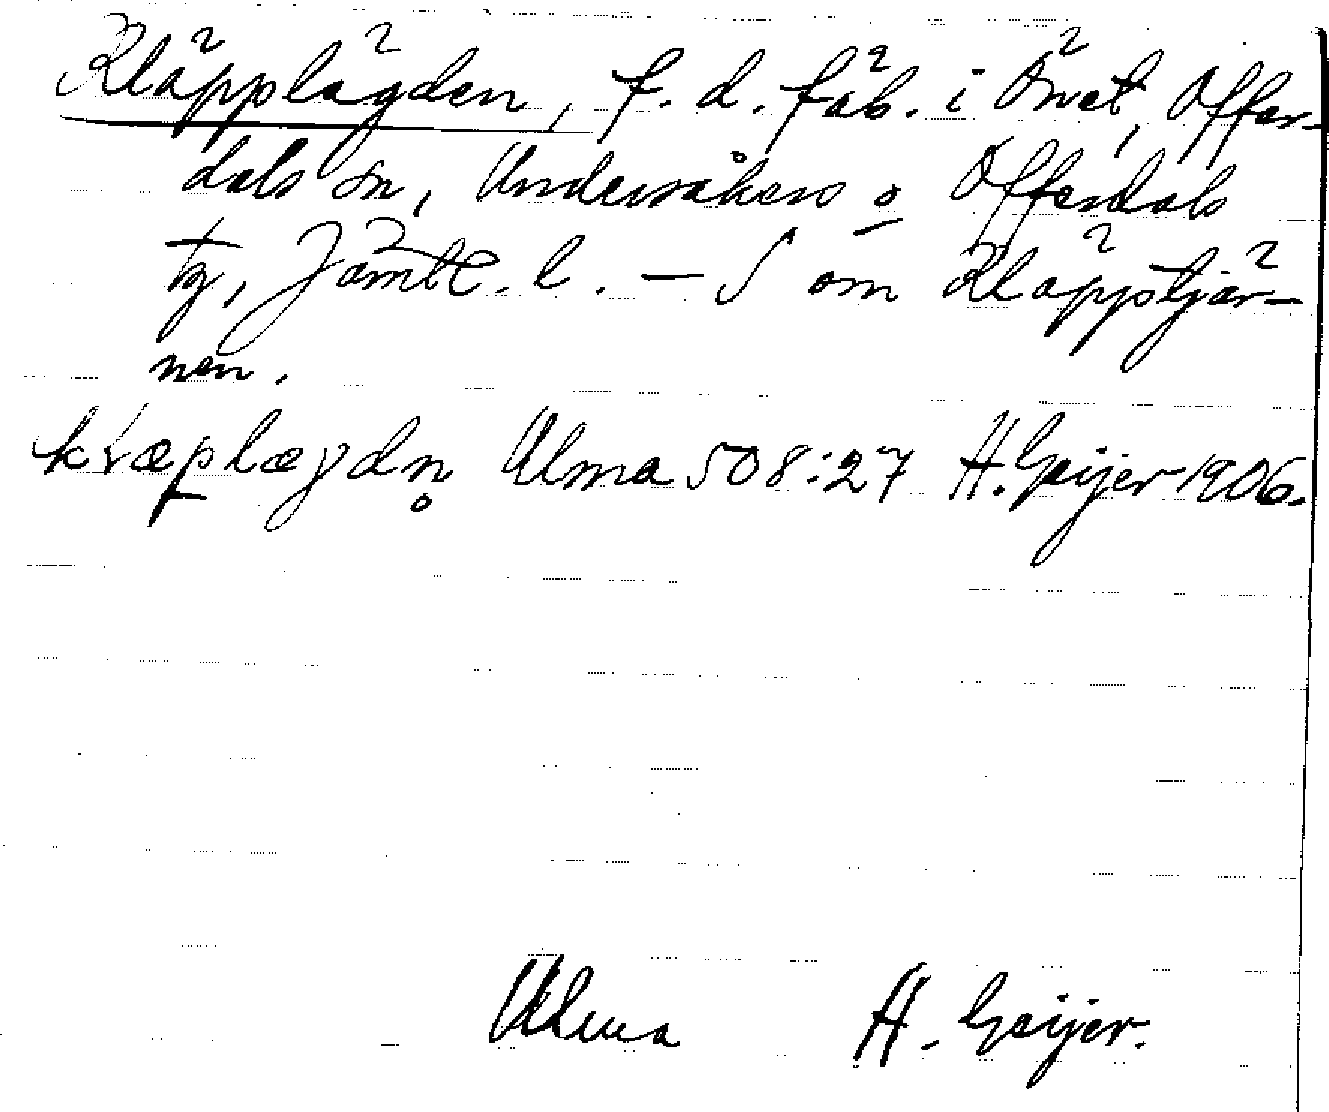 Kläpplägden, f. d. fäb. i Önet, Offer-
dals sn, Undersåkers o Offerdals
tg, Jämtl. l. – S om Kläppstjär-
nen.
kræplæɣdn̥ Ulma 508:27 H. Geijer 1906.
Ulma H. Geijer.